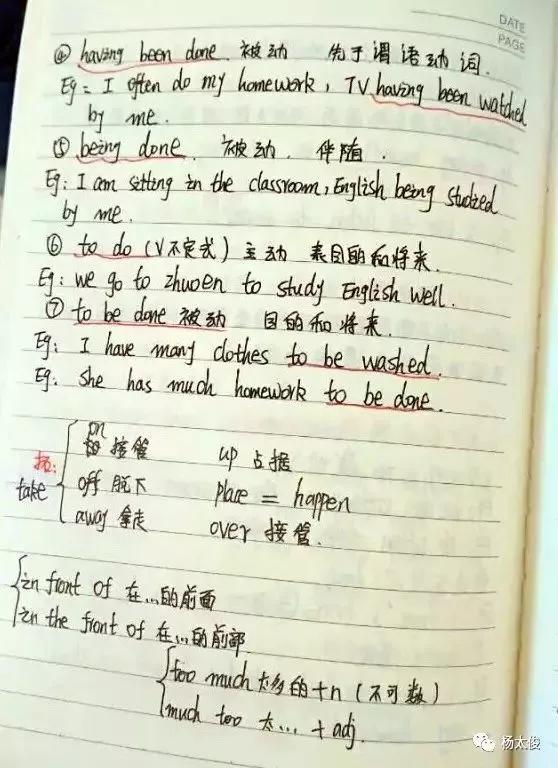 DATE
PAGE
④ having been done 被动 先于谓语动词.
Eg = I often do my homework, TV having been watched
by me.
⑤ being done. 被动. 伴随.
Eg: I am sitting in the classroom, English being studied
by me.
⑥ to do (V不定式) 主动 表目的和将来.
Eg: we go to zhuoen to study English well.
⑦ to be done 被动 目的和将来.
Eg: I have many clothes to be washed.
Eg: she has much homework to be done.
拓:
take
on 接管 up 占据
off 脱下 place = happen
away 拿走 over 接管.
in front of 在...的前面
in the front of 在...的前部
too much 太多的 +n (不可数)
much too 太... + adj.
杨太俊